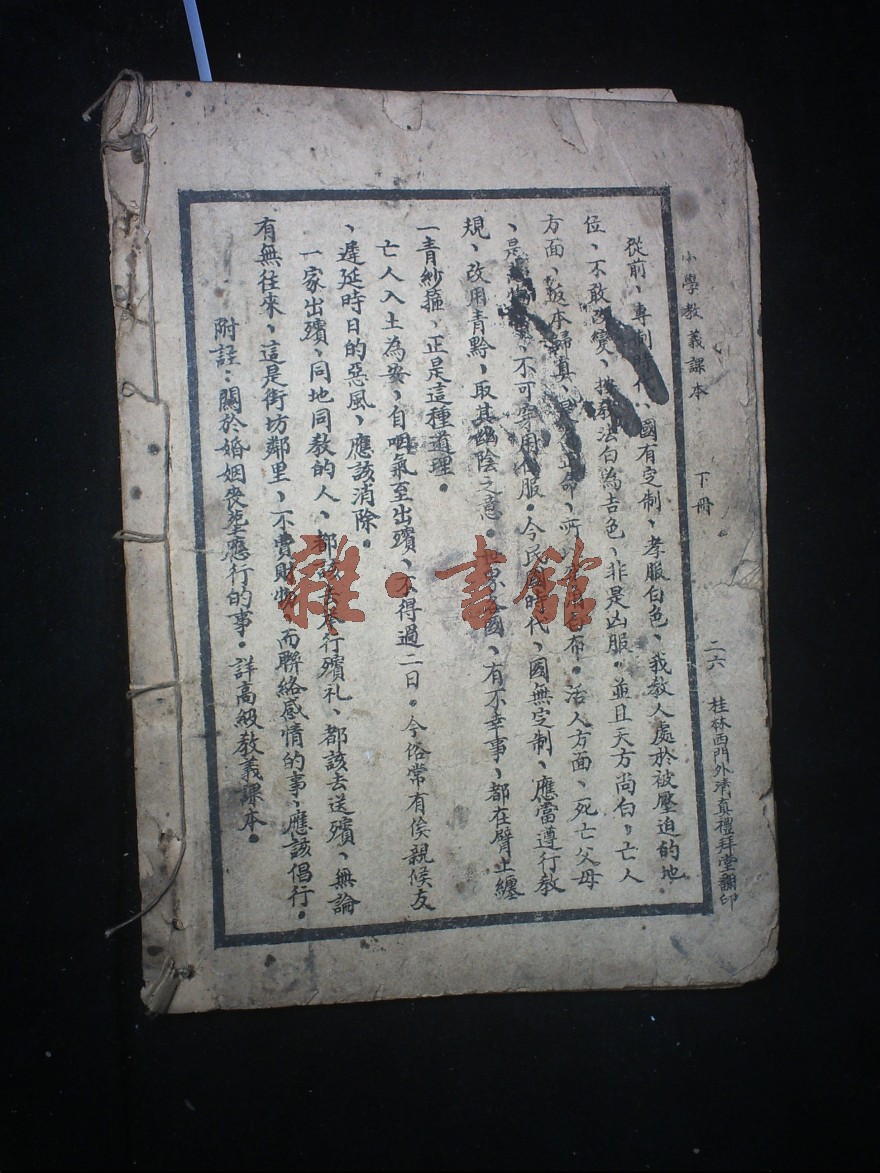 小學教義課本 下冊 二六 桂林西門外清真禮拜堂翻印
從前、專制時代、國有定制、孝服白色、我教人處於被壓迫的地
位、不敢改變、按教法白為吉色、非是凶服。並且天方尚白，亡人
方面、返本歸真、正命、所以用白布。活人方面、死亡父母
、是不可穿用服。今民國時代、國無定制、應當遵行教
規、改用青黔，取其幽陰之意。世界各國、有不幸事、都在臂上纏
一青紗箍、正是這種道理。
亡人入土為安、自咽氣至出殯、不得過二日。今俗常有俟親候友
、遲延時日的惡風、應該消除。
一家出殯、同地同教的人、都該去舉行殯礼、都該去送殯、無論
有無往來、這是街坊鄰里、不費財物、而聯絡感情的事、應該倡行。
附註：關於婚姻喪葬應行的事。詳高級教義課本。
雜·書館